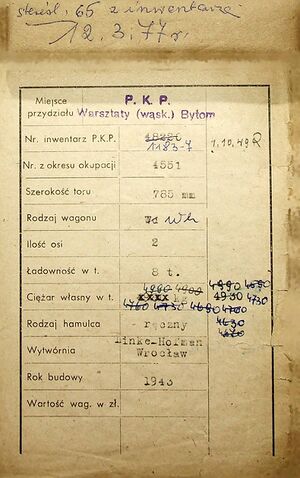 z inwentarza
12.3.77 r.
Miejsce przydziału P. K. P. Warsztaty (wąsk.) Bytom
Nr. inwentarz P.K.P. 1183-7 1.10.49
Nr. z okresu okupacji 4551
Szerokość toru 785 mm
Rodzaj wagonu Wd
Ilość osi 2
Ładowność w t. 8 t.
4960 4900 4990 4690
Ciężar własny w t. xxxx kg 4930 4730
4760 4730 4690 4700
Rodzaj hamulca ręczny 4630
Wytwórnia Linke-Hofman Wrocław
Rok budowy 1943
Wartość wag. w zł.